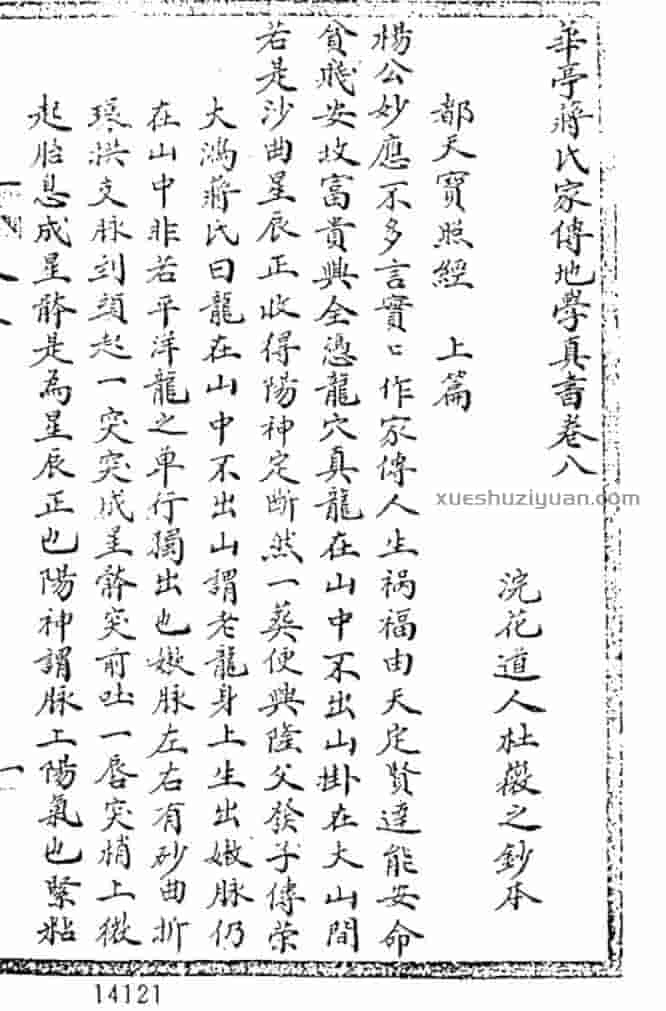 華亭蔣氏家傳地學真書卷八
浣花道人杜薇之鈔本
都天寶照經　上篇
楊公妙應不多言實〻作家傳人生禍福由天定賢達能安命
貧賤安坟富貴興全憑龍穴真龍在山中不出山掛在大山間
若是沙曲星辰正收得陽神定斷然一葬便興隆父發子傳荣
大鴻蔣氏曰龍在山中不出山謂老龍身上生出嫩脉仍
在山中非若平洋龍之单行獨出也嫩脉左右有砂曲折
環拱支脉到頭起一突突成星體突前吐一唇突稍上微
起胎息成星體是為星辰正也陽神謂脉上陽氣也緊粘
xueshuziyuan.com
14121